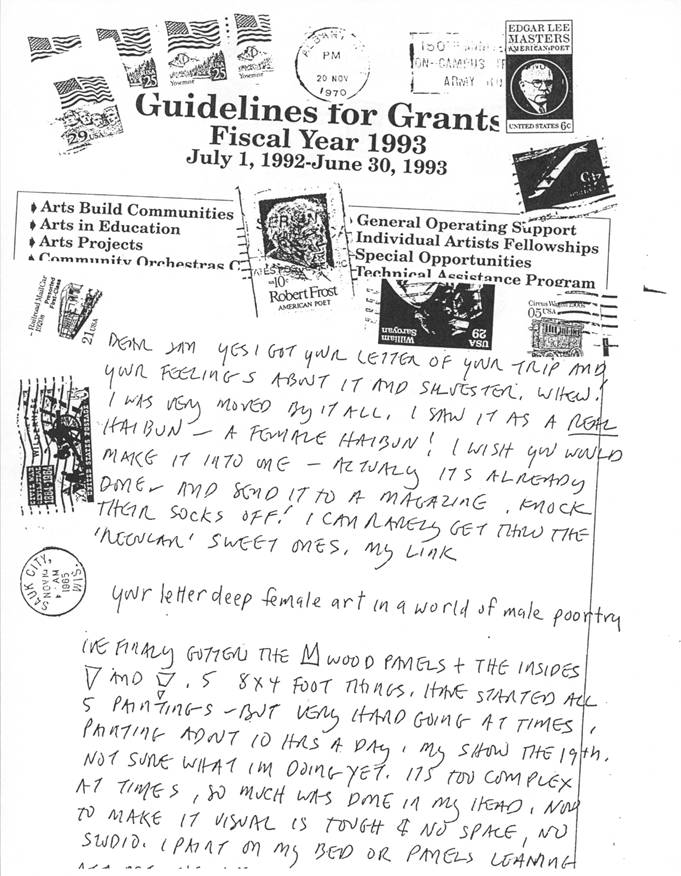 25
Yosemite
25
Yosemite
29 USA
ALBANY
PM
20 NOV
1970
150TH
ON-CAMPUS
ARMY
EDGAR LEE
MASTERS
AMERICAN POET
UNITED STATES 6c
Guidelines for Grants
Fiscal Year 1993
July 1, 1992-June 30, 1993
45
Arts Build Communities
Arts in Education
Arts Projects
Community Orchestras
General Operating Support
Individual Artists Fellowships
Special Opportunities
Technical Assistance Program
10c
Robert Frost
AMERICAN POET
Railroad Mail Car
1920s
Presorted
First-Class
21 USA
William
Saroyan
USA
29
Circus Wagon 1900s
05 USA
DEAR JAM YES I GOT YOUR LETTER OF YOUR TRIP AND
YOUR FEELINGS ABOUT IT AND SILVESTER. WHEW!
I WAS VERY MOVED BY IT ALL. I SAW IT AS A REAL
HAIBUN — A FEMALE HAIBUN! I WISH YOU WOULD
MAKE IT INTO ONE — ACTUALY ITS ALREADY
DONE — AND SEND IT TO A MAGAZINE. KNOCK
THEIR SOCKS OFF! I CAN RARELY GET THRU THE
'REGULAR' SWEET ONES. MY LINK
SAUK CITY,
WIS.
NOV
AM
1965
your letter deep female art in a world of male poortry
IVE FINALY GOTTEN THE WOOD PANELS + THE INSIDES
AND . 5 8X4 FOOT THINGS. HAVE STARTED ALL
5 PAINTINGS — BUT VERY HARD GOING AT TIMES.
PAINTING ABOUT 10 HRS A DAY. MY SHOW THE 19th.
NOT SURE WHAT IM DOING YET. ITS TOO COMPLEX
AT TIMES, SO MUCH WAS DONE IN MY HEAD. NOW
TO MAKE IT VISUAL IS TOUGH & NO SPACE, NO
STUDIO. I PAINT ON MY BED OR PANELS LEANING